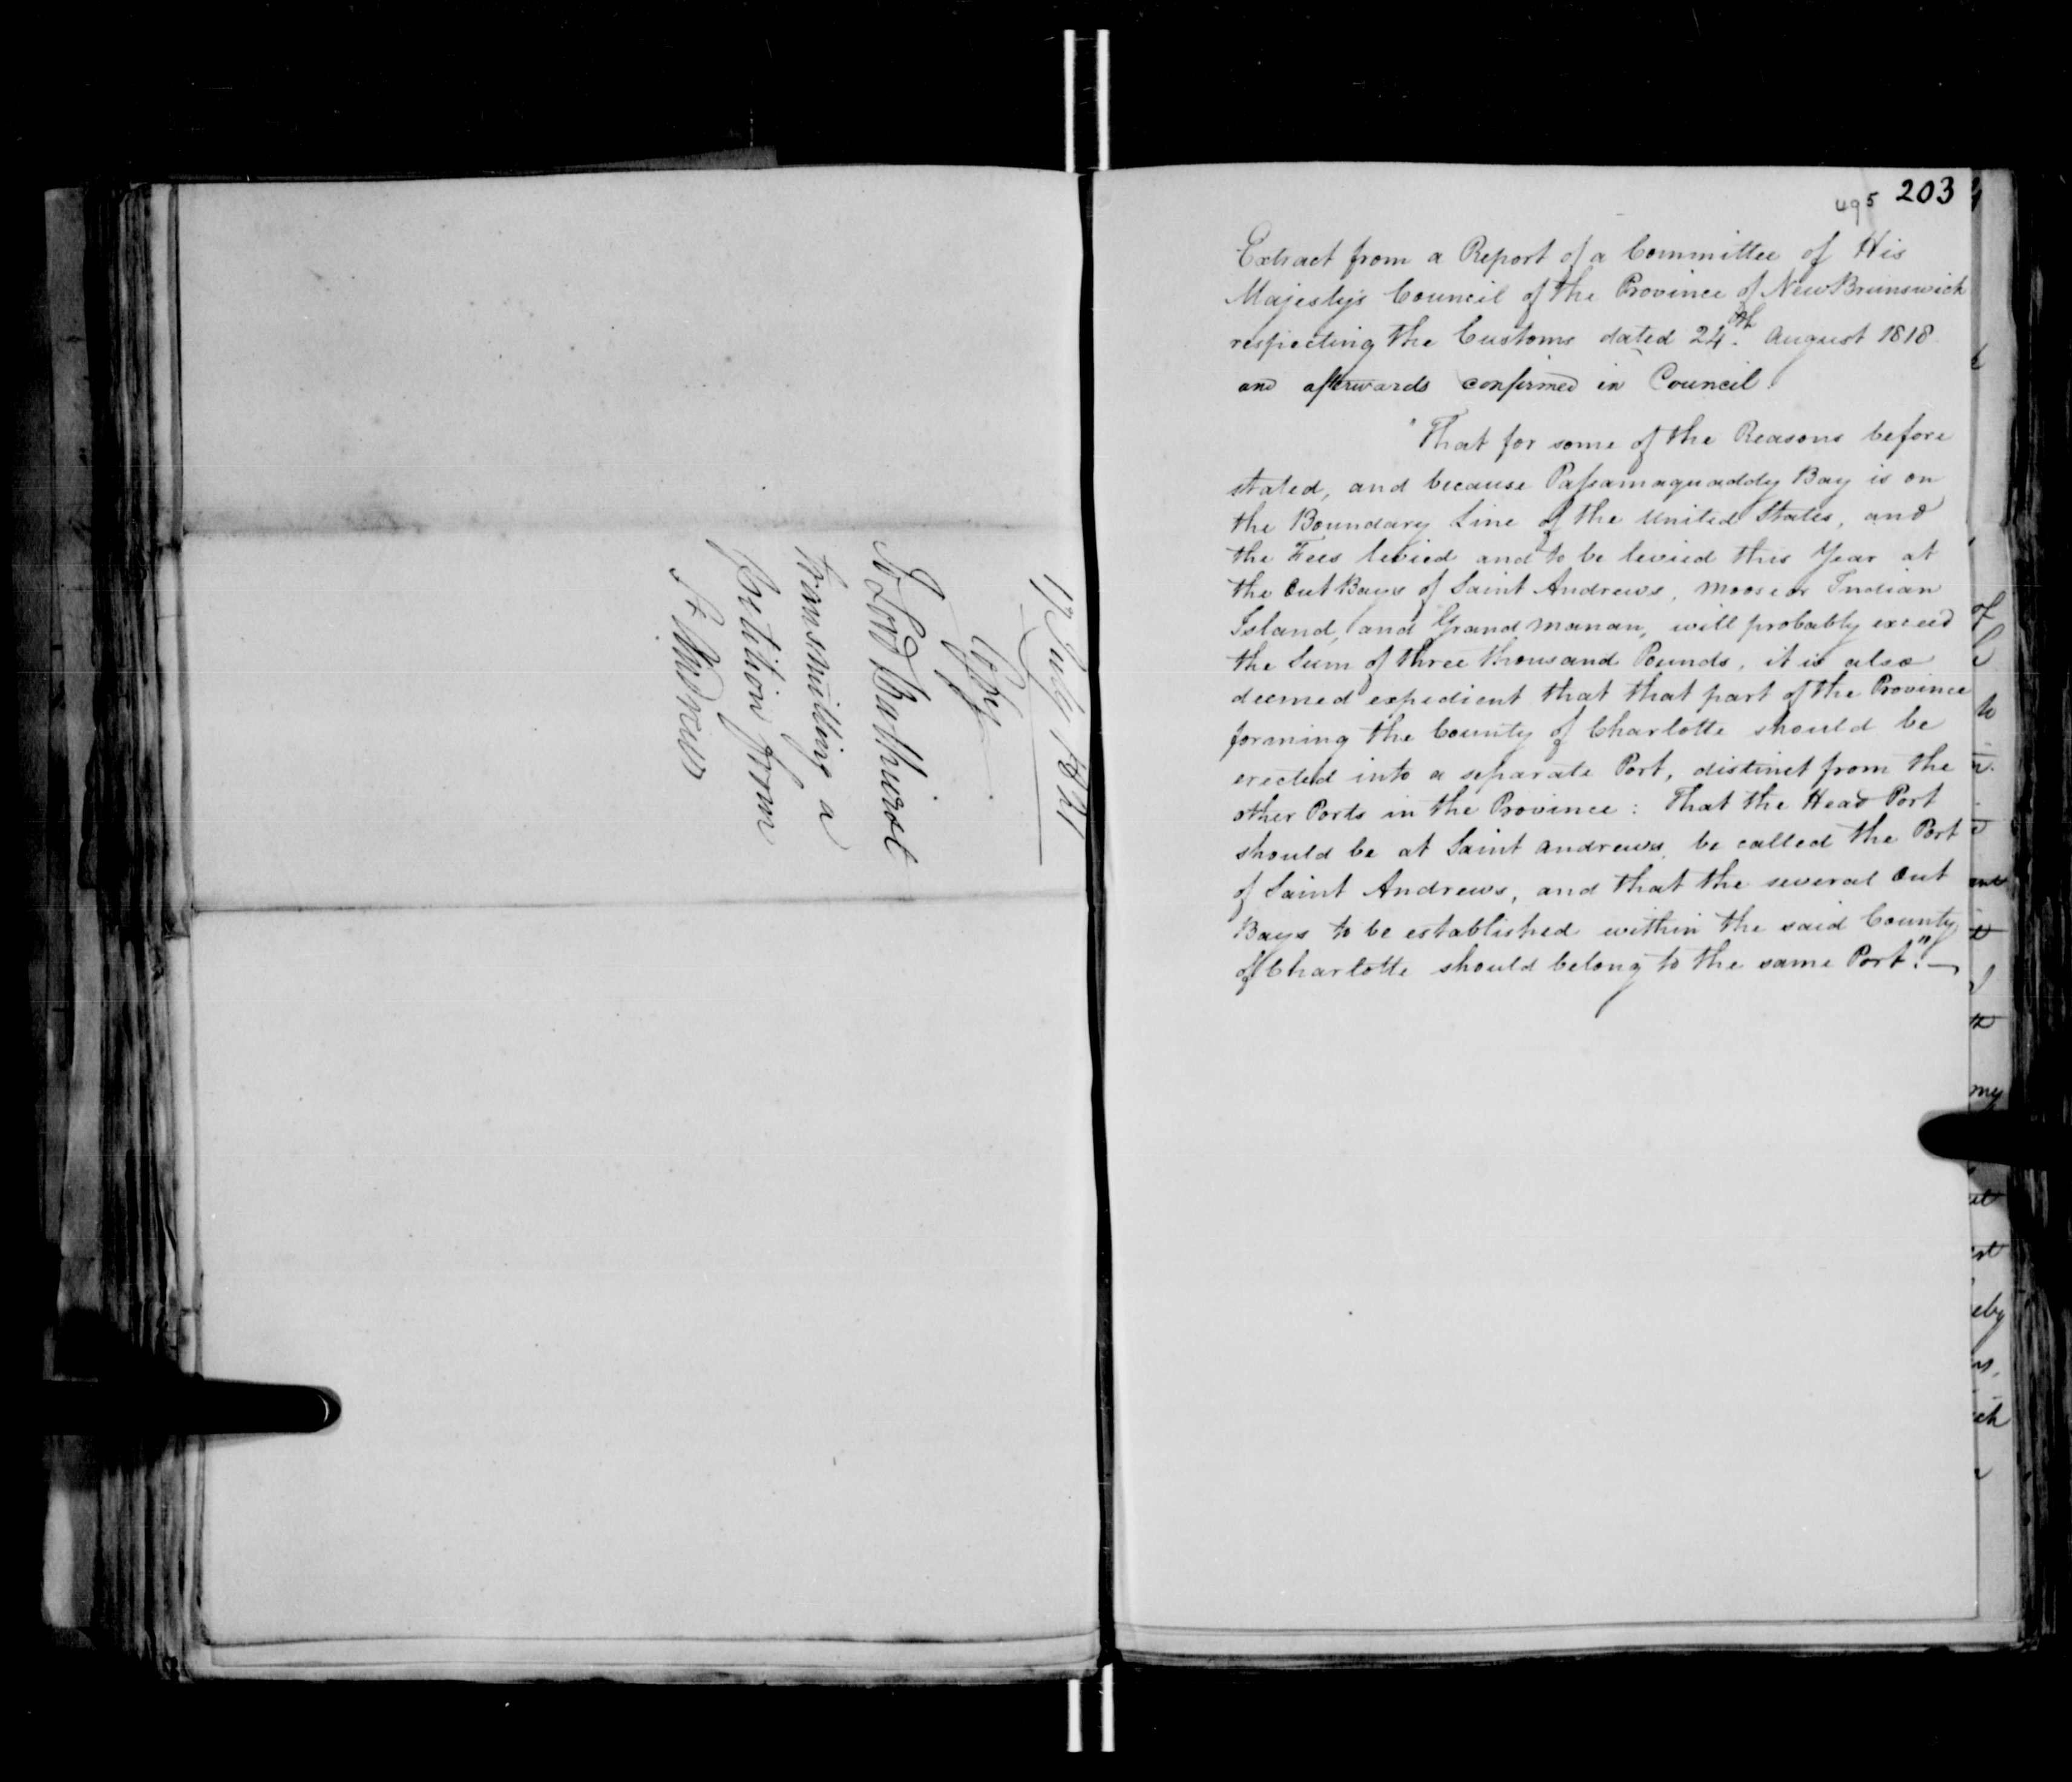 17 July 1821
Copy
To Lord Bathurst
transmitting a
Petition from
St. Andrews
495 203
Extract from a Report of a Committee of His
Majesty's Council of the Province of New Brunswick
respecting the Customs dated 24th. August 1818
and afterwards confirmed in Council.
"That for some of the Reasons before
stated, and because Passamaquaddy Bay is on
the Boundary Line of the United States, and
the Fees levied and to be levied this Year at
the Out Bays of Saint Andrews, Moose or Indian
Island, and Grand Manan, will probably exceed
the Sum of three thousand Pounds, it is also
deemed expedient that that part of the Province
forming the County of Charlotte should be
erected into a separate Port, distinct from the
other Ports in the Province: That the Head Port
should be at Saint Andrews, be called the Port
of Saint Andrews, and that the several Out
Bays to be established within the said County
of Charlotte should belong to the same Port."—